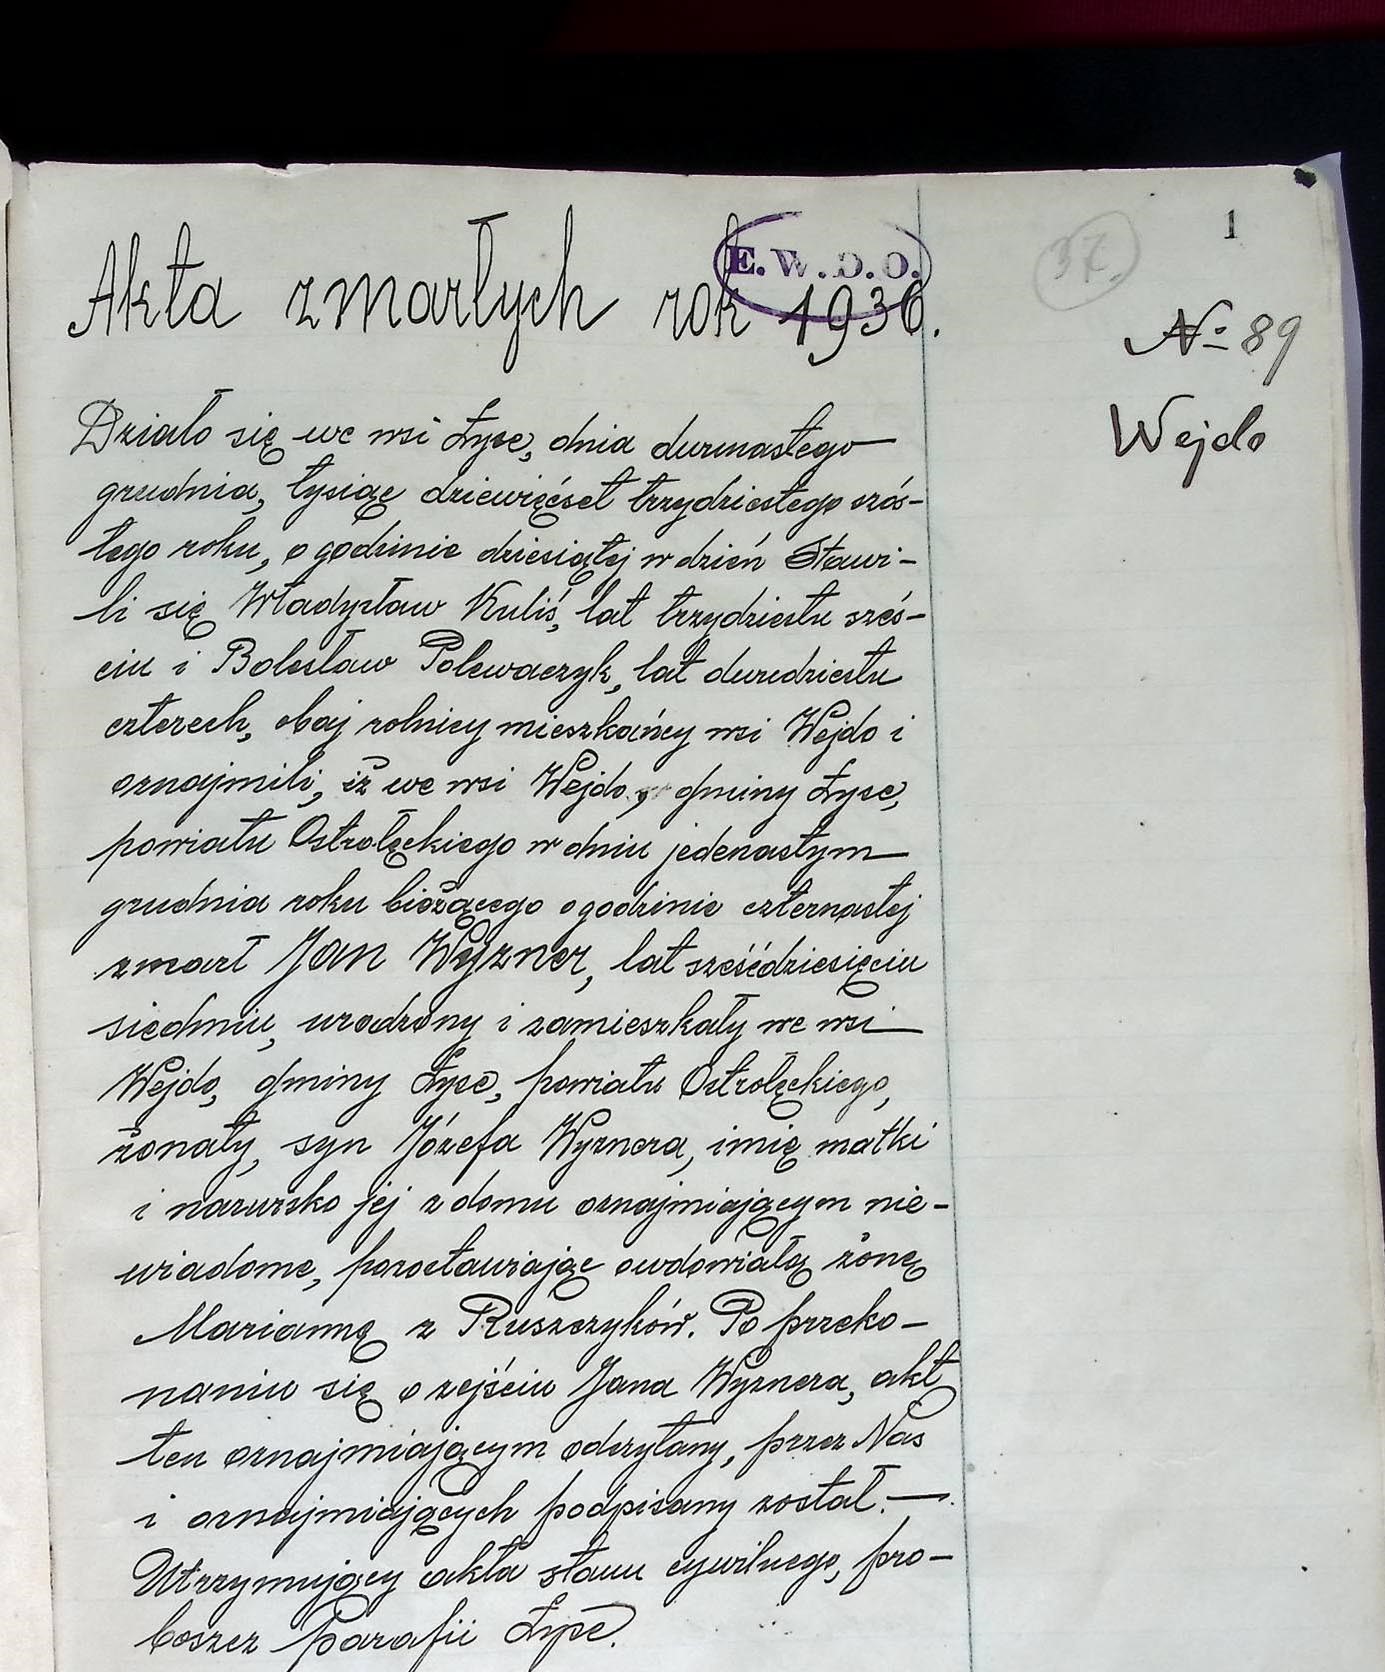 1
37.
E. W. D. O.
Akta zmarłych rok 1936.
№ 89
Wejdo
Działo się we wsi Łyse, dnia dwunastego
grudnia, tysiąc dziewięćset trzydziestego szós-
tego roku, o godzinie dziesiątej w dzień Stawi-
li się Władysław Kuliś, lat trzydziestu sześ-
ciu i Bolesław Polewaczyk, lat dwudziestu
czterech, obaj rolnicy mieszkańcy wsi Wejdo i
oznajmili, iż we wsi Wejdo, gminy Łyse,
powiatu Ostrołęckiego w dniu jedenastym
grudnia roku bieżącego o godzinie czternastej
zmarł Jan Wyzner, lat sześćdziesięciu
siedmiu, urodzony i zamieszkały we wsi
Wejdo, gminy Łyse, powiatu Ostrołęckiego,
żonaty, syn Józefa Wyznera, imię matki
i nazwisko jej z domu oznajmiającym nie-
wiadome, pozostawiając owdowiałą żonę
Mariannę z Ruszczyków. Po przeko-
naniu się o zejściu Jana Wyznera, akt
ten oznajmiającym odczytany, przez Nas
i oznajmiających podpisany został. —
Utrzymujący akta stanu cywilnego, pro-
boszcz Parafii Łyse.